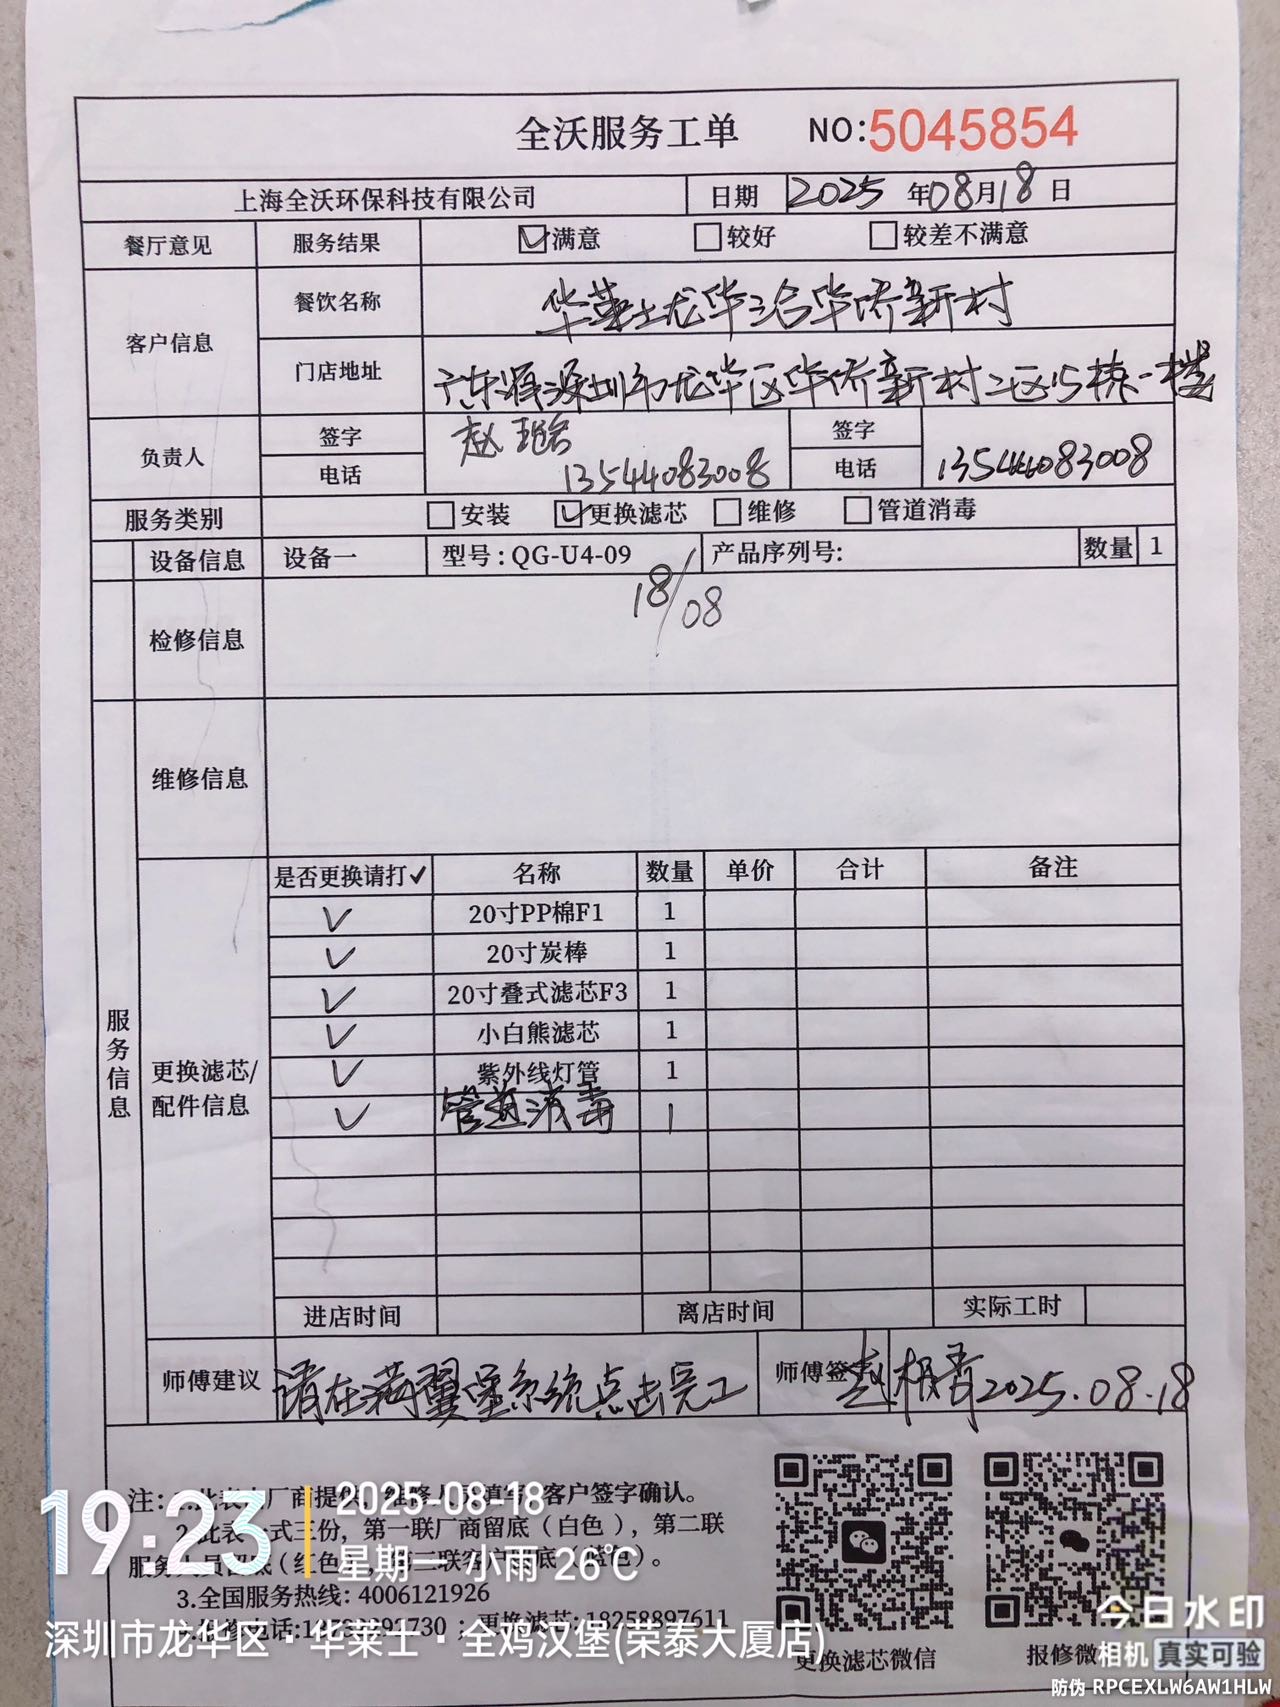 全沃服务工单 NO:5045854
上海全沃环保科技有限公司 日期 2025 年08月18日
餐厅意见 服务结果 满意 较好 较差不满意
客户信息 餐饮名称 华莱士龙华三合华侨新村
门店地址 广东省深圳市龙华区华侨新村二区15栋一楼
负责人 签字 赵 签字
电话 13544083008 电话 13544083008
服务类别 安装 更换滤芯 维修 管道消毒
设备信息 设备一 型号:QG-U4-09 产品序列号: 数量 1
检修信息 18/08
维修信息
服务信息
更换滤芯/
配件信息
是否更换请打✓ 名称 数量 单价 合计 备注
✓ 20寸PP棉F1 1
✓ 20寸炭棒 1
✓ 20寸叠式滤芯F3 1
✓ 小白熊滤芯 1
✓ 紫外线灯管 1
✓ 管道消毒 1
进店时间 离店时间 实际工时
师傅建议 请在满翼堡系统点击完工 师傅签 赵 2025.08.18
注: 厂商提供 客户签字确认。
2.此表一式三份，第一联厂商留底（白色），第二联
服务人员留底(红色) 。
3.全国服务热线: 4006121926
730 ; 更换滤芯: 18258897611
更换滤芯微信 报修微
19:23 2025-08-18
星期一 小雨 26℃
深圳市龙华区·华莱士·全鸡汉堡(荣泰大厦店)
今日水印
相机 真实可验
防伪 RPCEXLW6AW1HLW